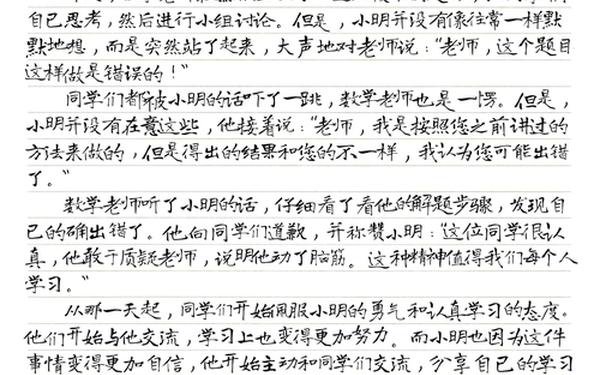 自己思考，然后进行小组讨论。但是，小明并没有像往常一样默
默地想，而是突然站了起来，大声地对老师说：“老师，这个题目
这样做是错误的！”
同学们都被小明的话吓了一跳，数学老师也是一愣。但是，
小明并没有在意这些，他接着说：“老师，我是按照您之前讲过的
方法来做的，但是得出的结果和您的不一样，我认为您可能出错
了。”
数学老师听了小明的话，仔细看了看他的解题步骤，发现自
己的确出错了。他向同学们道歉，并称赞小明：“这位同学很认
真，他敢于质疑老师，说明他动了脑筋。这种精神值得我们每个人
学习。”
从那一天起，同学们开始佩服小明的勇气和认真学习的态度。
他们开始与他交流，学习上也变得更加努力。而小明也因为这件
事情变得更加自信，他开始主动和同学们交流，分享自己的学习